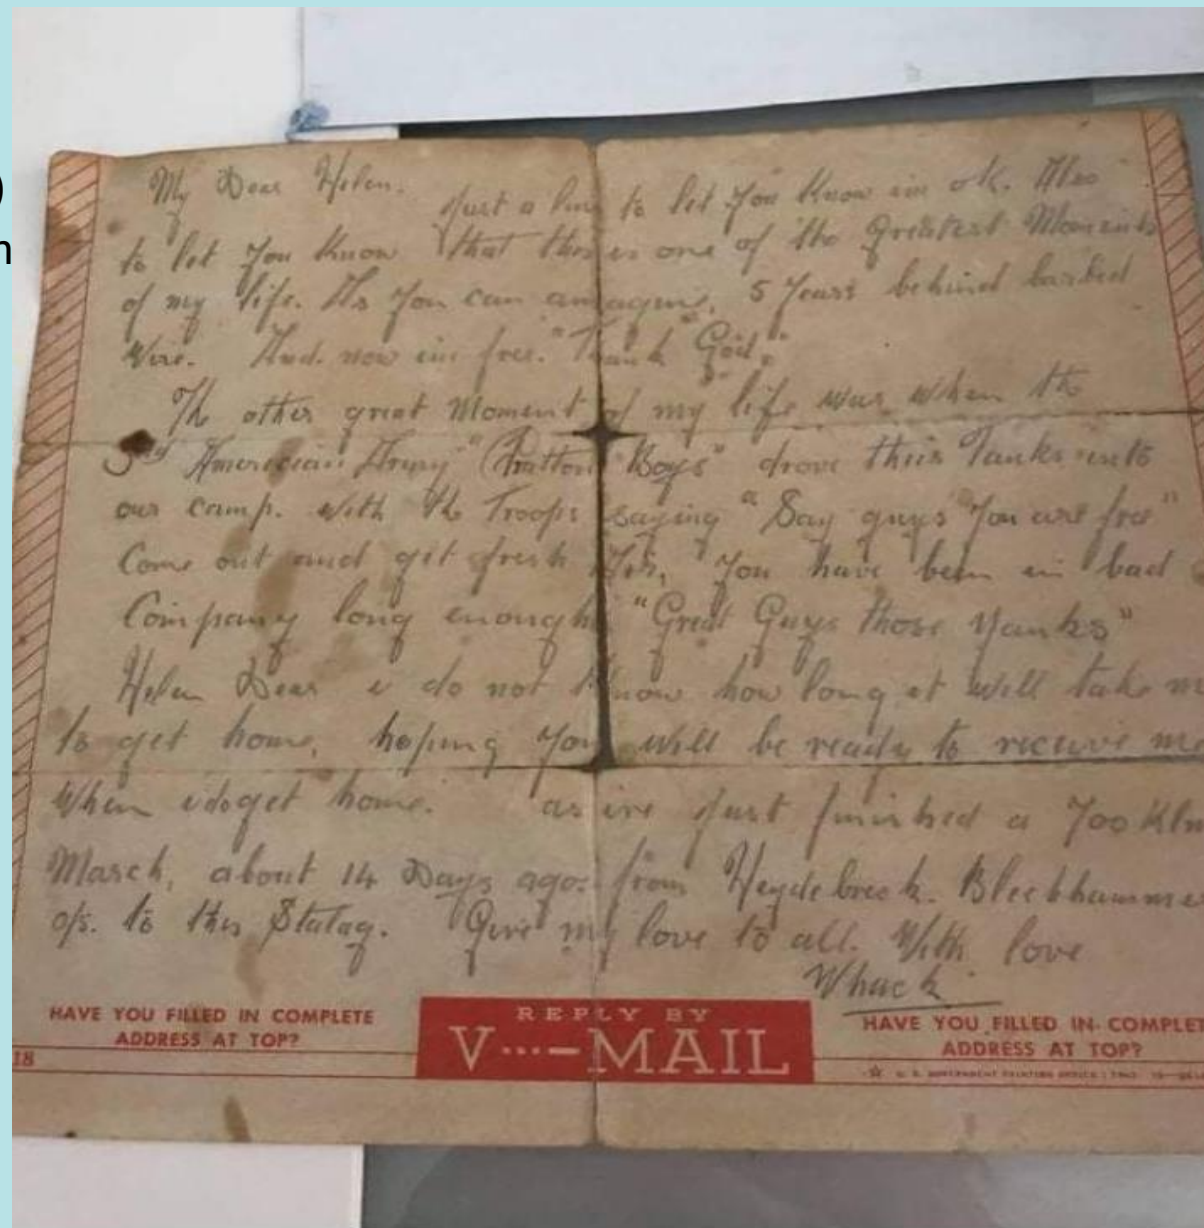 )
n
My Dear Helen.
Just a line to let you know im ok. Also
to let you know that this is one of the Greatest Moments
of my life. As you can amagine, 5 years behind barbed
Wire. And. now im free. "Thank God."
The other great Moment of my life was when the
3rd American Army "(Patton Boys" drove their Tanks into
our camp. with the Troops saying "Say guys "you are free"
Come out and get fresh Air, you have been in bad
Company long enough "Great Guys those Yanks"
Helen Dear i do not know how long it will take m
to get home, hoping you will be ready to recieve m
When i do get home. as ive just finished a 700 Klm
March, about 14 Days ago. from Heydebreck. Blechhamme
o/s. to this Stalag. Give my love to all. With love
Whack
HAVE YOU FILLED IN COMPLETE
ADDRESS AT TOP?
REPLY BY
V···—MAIL
HAVE YOU FILLED IN COMPLET
ADDRESS AT TOP?
18
☆ U. S. GOVERNMENT PRINTING OFFICE :